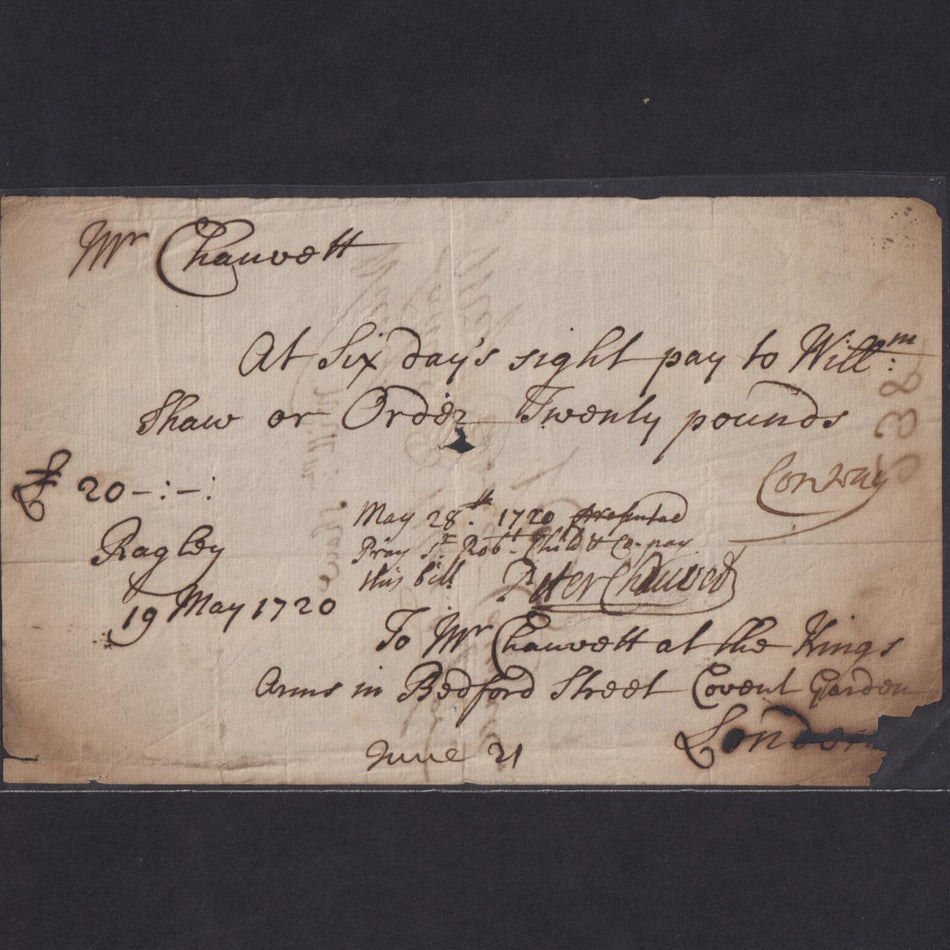 Mr Chauvett
At Six day's sight pay to Will:m
Shaw or Order Twenty pounds
£ 20-:-:
Conway
538
May 28th. 1720 presented
Pray Sr. Robt. Child & Co. pay
this bill Peter Chauvet
Ragley
19 May 1720
To Mr Chauvett at the Kings
Arms in Bedford Street Covent Garden
London
June 21